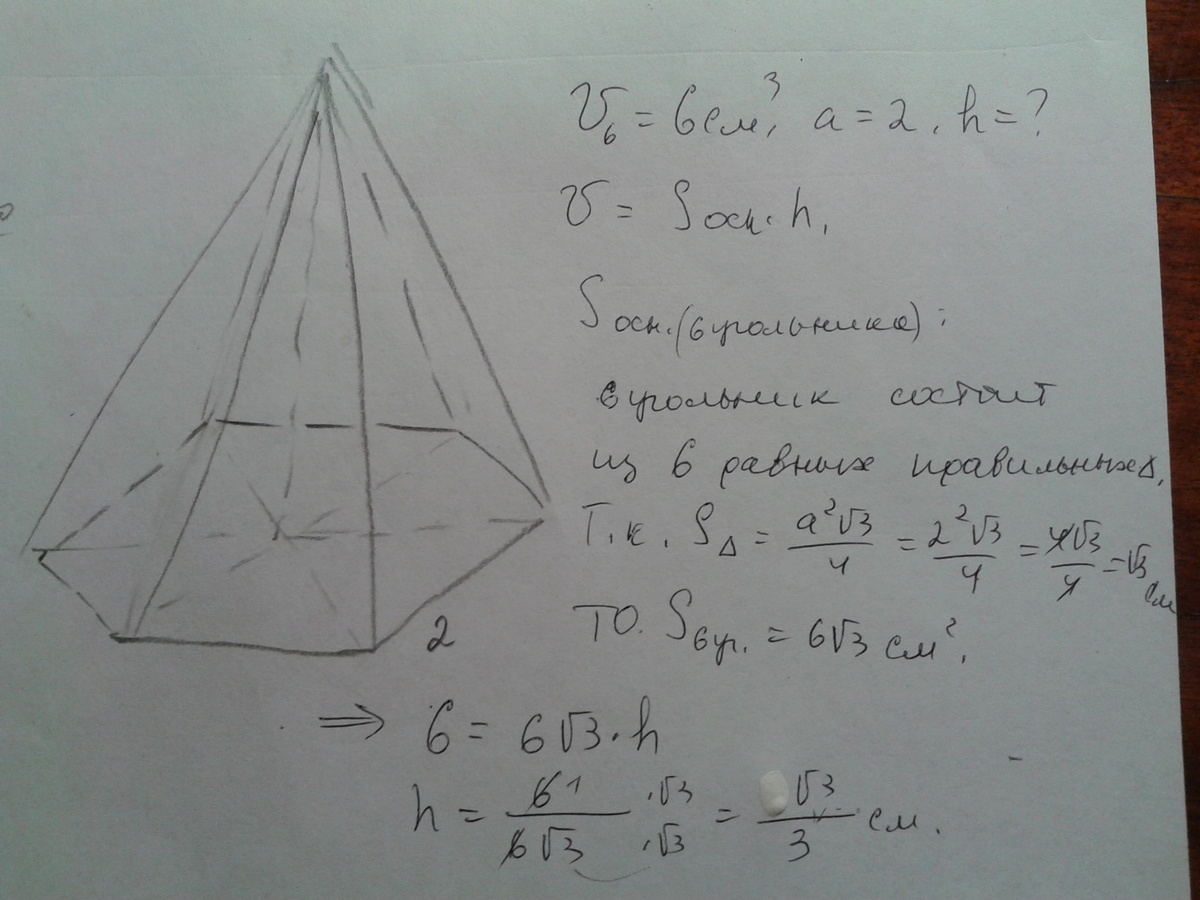 V₆ = 6 см³, a = 2, h = ?
V = Sосн. · h,
Sосн. (6угольника):
6угольник состоит
из 6 равных правильных Δ,
Т.к. SΔ = a²√3/4 = 2²√3/4 = 4√3/4 = √3 см
ТО. S6уг. = 6√3 см².
⇒ 6 = 6√3 · h
h = 6 1/6√3 ·√3/·√3 = √3/3 см.
2